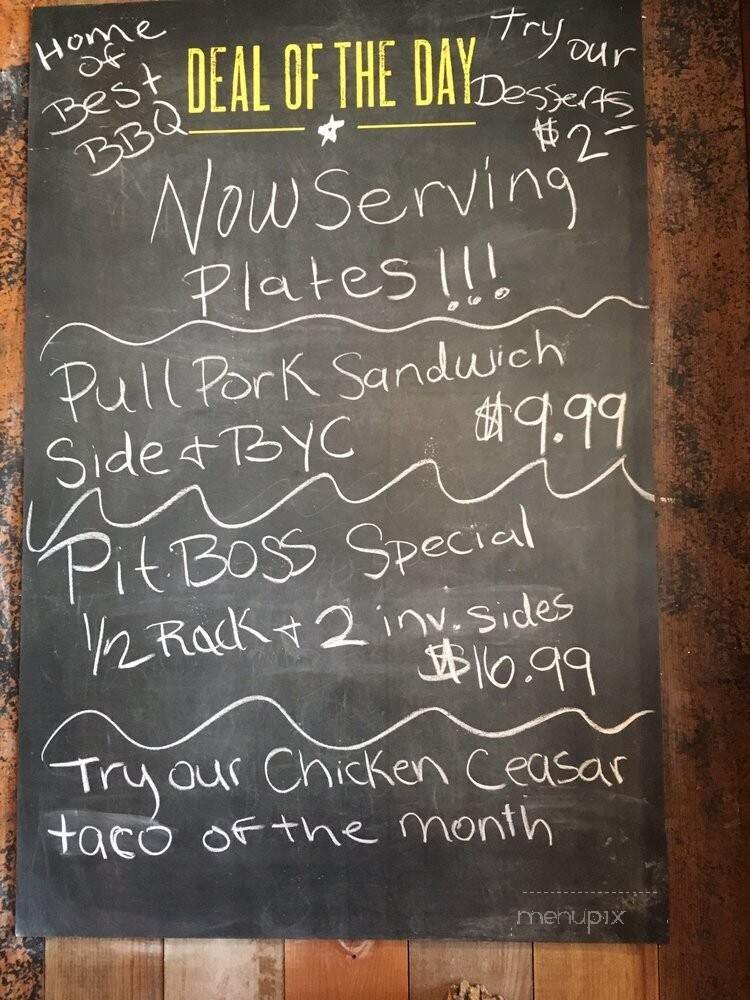 Home
of
Best
BBQ
DEAL OF THE DAY
Try our
Desserts
$2-
Now Serving
Plates!!!
Pull Pork Sandwich
Side + BYC $9.99
Pit Boss Special
1/2 Rack + 2 inv. sides
$16.99
Try our Chicken Ceasar
taco of the month
menupix